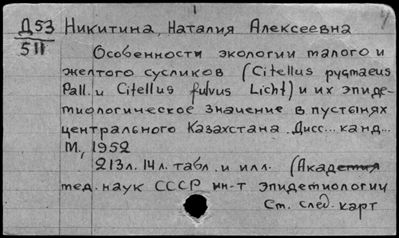 Д53 Никитина, Наталия Алексеевна
511
Особенности экологии малого и
желтого сусликов (Citellus pygmaeus
Pall. и Citellus fulvus Licht) и их эпиде-
миологическое значение в пустынях
центрального Казахстана. Дисс... канд...
М., 1952
213л. 14л. табл. и илл. (Академия
мед. наук СССР ин-т эпидемиологии
См. след. карт